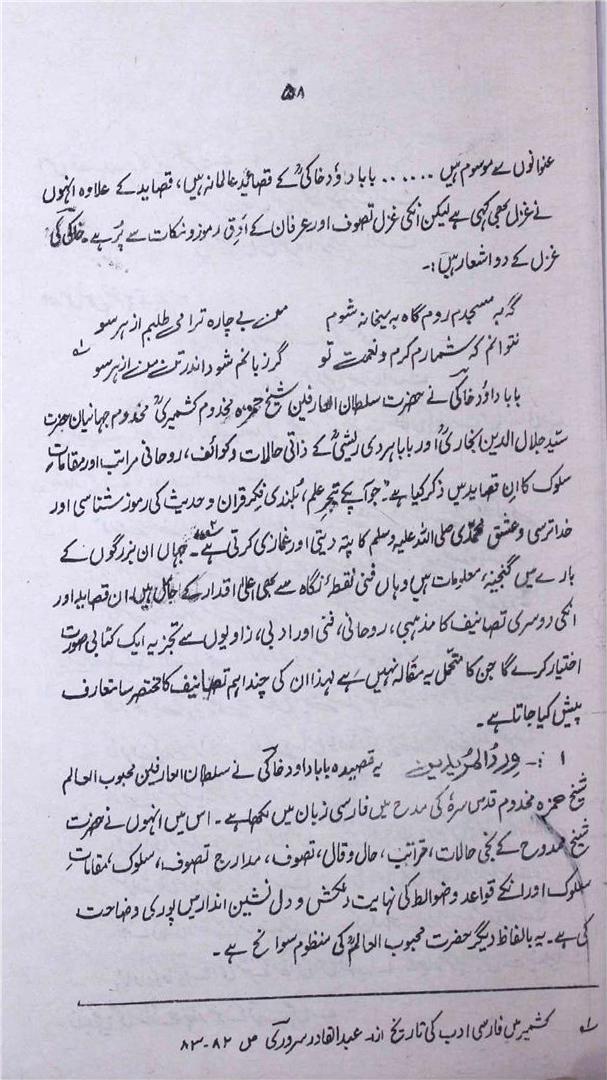 ۵۸
عنوانوں سے موسوم ہیں ...... بابا داؤد خاکیؒ کے قصائید عالمانہ ہیں، قصاید کے علاوہ انہوں
نے غزل بھی کہی ہے لیکن انکی غزل تصوف اور عرفان کے ادق رموز و نکات سے پُر ہے۔ خاکیؒ کی
غزل کے دو اشعار ہیں:۔
گہ بہ مسجدم روم گاہ بہ میخانہ شوم منِ بے چارہ ترا می طلبم از ہر سو
نتوانم کہ شمارم کرم و نعمتِ تو گر زبانم شود اندر تنِ من از ہر سو ؎۱
بابا داؤد خاکیؒ نے حضرت سلطان العارفین شیخ حمزہ مخدوم کشمیریؒ مخدوم جہانیاں حضرت
سیّد جلال الدین بخاریؒ اور بابا ہردی ریشیؒ کے ذاتی حالات و کوائف، روحانی مراتب اور مقاماتِ
سلوک کا اِن قصاید میں ذکر کیا ہے۔ "جو آپکے تبحرِ علم، بلندی فکر قران و حدیث کی رموز شناسی اور
خدا ترسی و عشقِ محمدؐی صلی اللہ علیہ وسلم کا پتہ دیتی اور غمازی کرتی ہے"۔ جہاں ان بزرگوں کے
بارے میں گنجینۂ معلومات ہیں وہاں فنی نقطۂ نگاہ سے بھی اعلیٰ اقدار کے حامل ہیں۔ ان قصاید اور
انکی دوسری تصانیف کا مذہبی، روحانی، فنی اور ادبی، زاویوں سے تجزیہ ایک کتابی صورت
اختیار کرے گا جن کا متحمل یہ مقالہ نہیں ہے لہذا ان کی چند اہم تصانیف کا مختصر سا تعارف
پیش کیا جاتا ہے۔
۱ :۔ وِردُ المریدین یہ قصیدہ بابا داود خاکیؒ نے سلطان العارفین محبوب العالم
شیخ حمزہ مخدوم قدس سرہٗ کی مدح میں فارسی زبان میں لکھا ہے۔ اس میں انہوں نے حضرت
شیخ ممدوح کے نجی حالات، مراتب، حال و قال، تصوف، مدارج تصوف، سلوک، مقاماتِ
سلوک اور انکے قواعد و ضوابط کی نہایت دلکش و دل نشین انداز میں پوری وضاحت
کی ہے۔ یہ بالفاظ دیگر حضرت محبوب العالمؒ کی منظوم سوانح ہے۔
؎۱ کشمیر میں فارسی ادب کی تاریخ از۔ عبدالقادر سروری ص ۸۲-۸۳